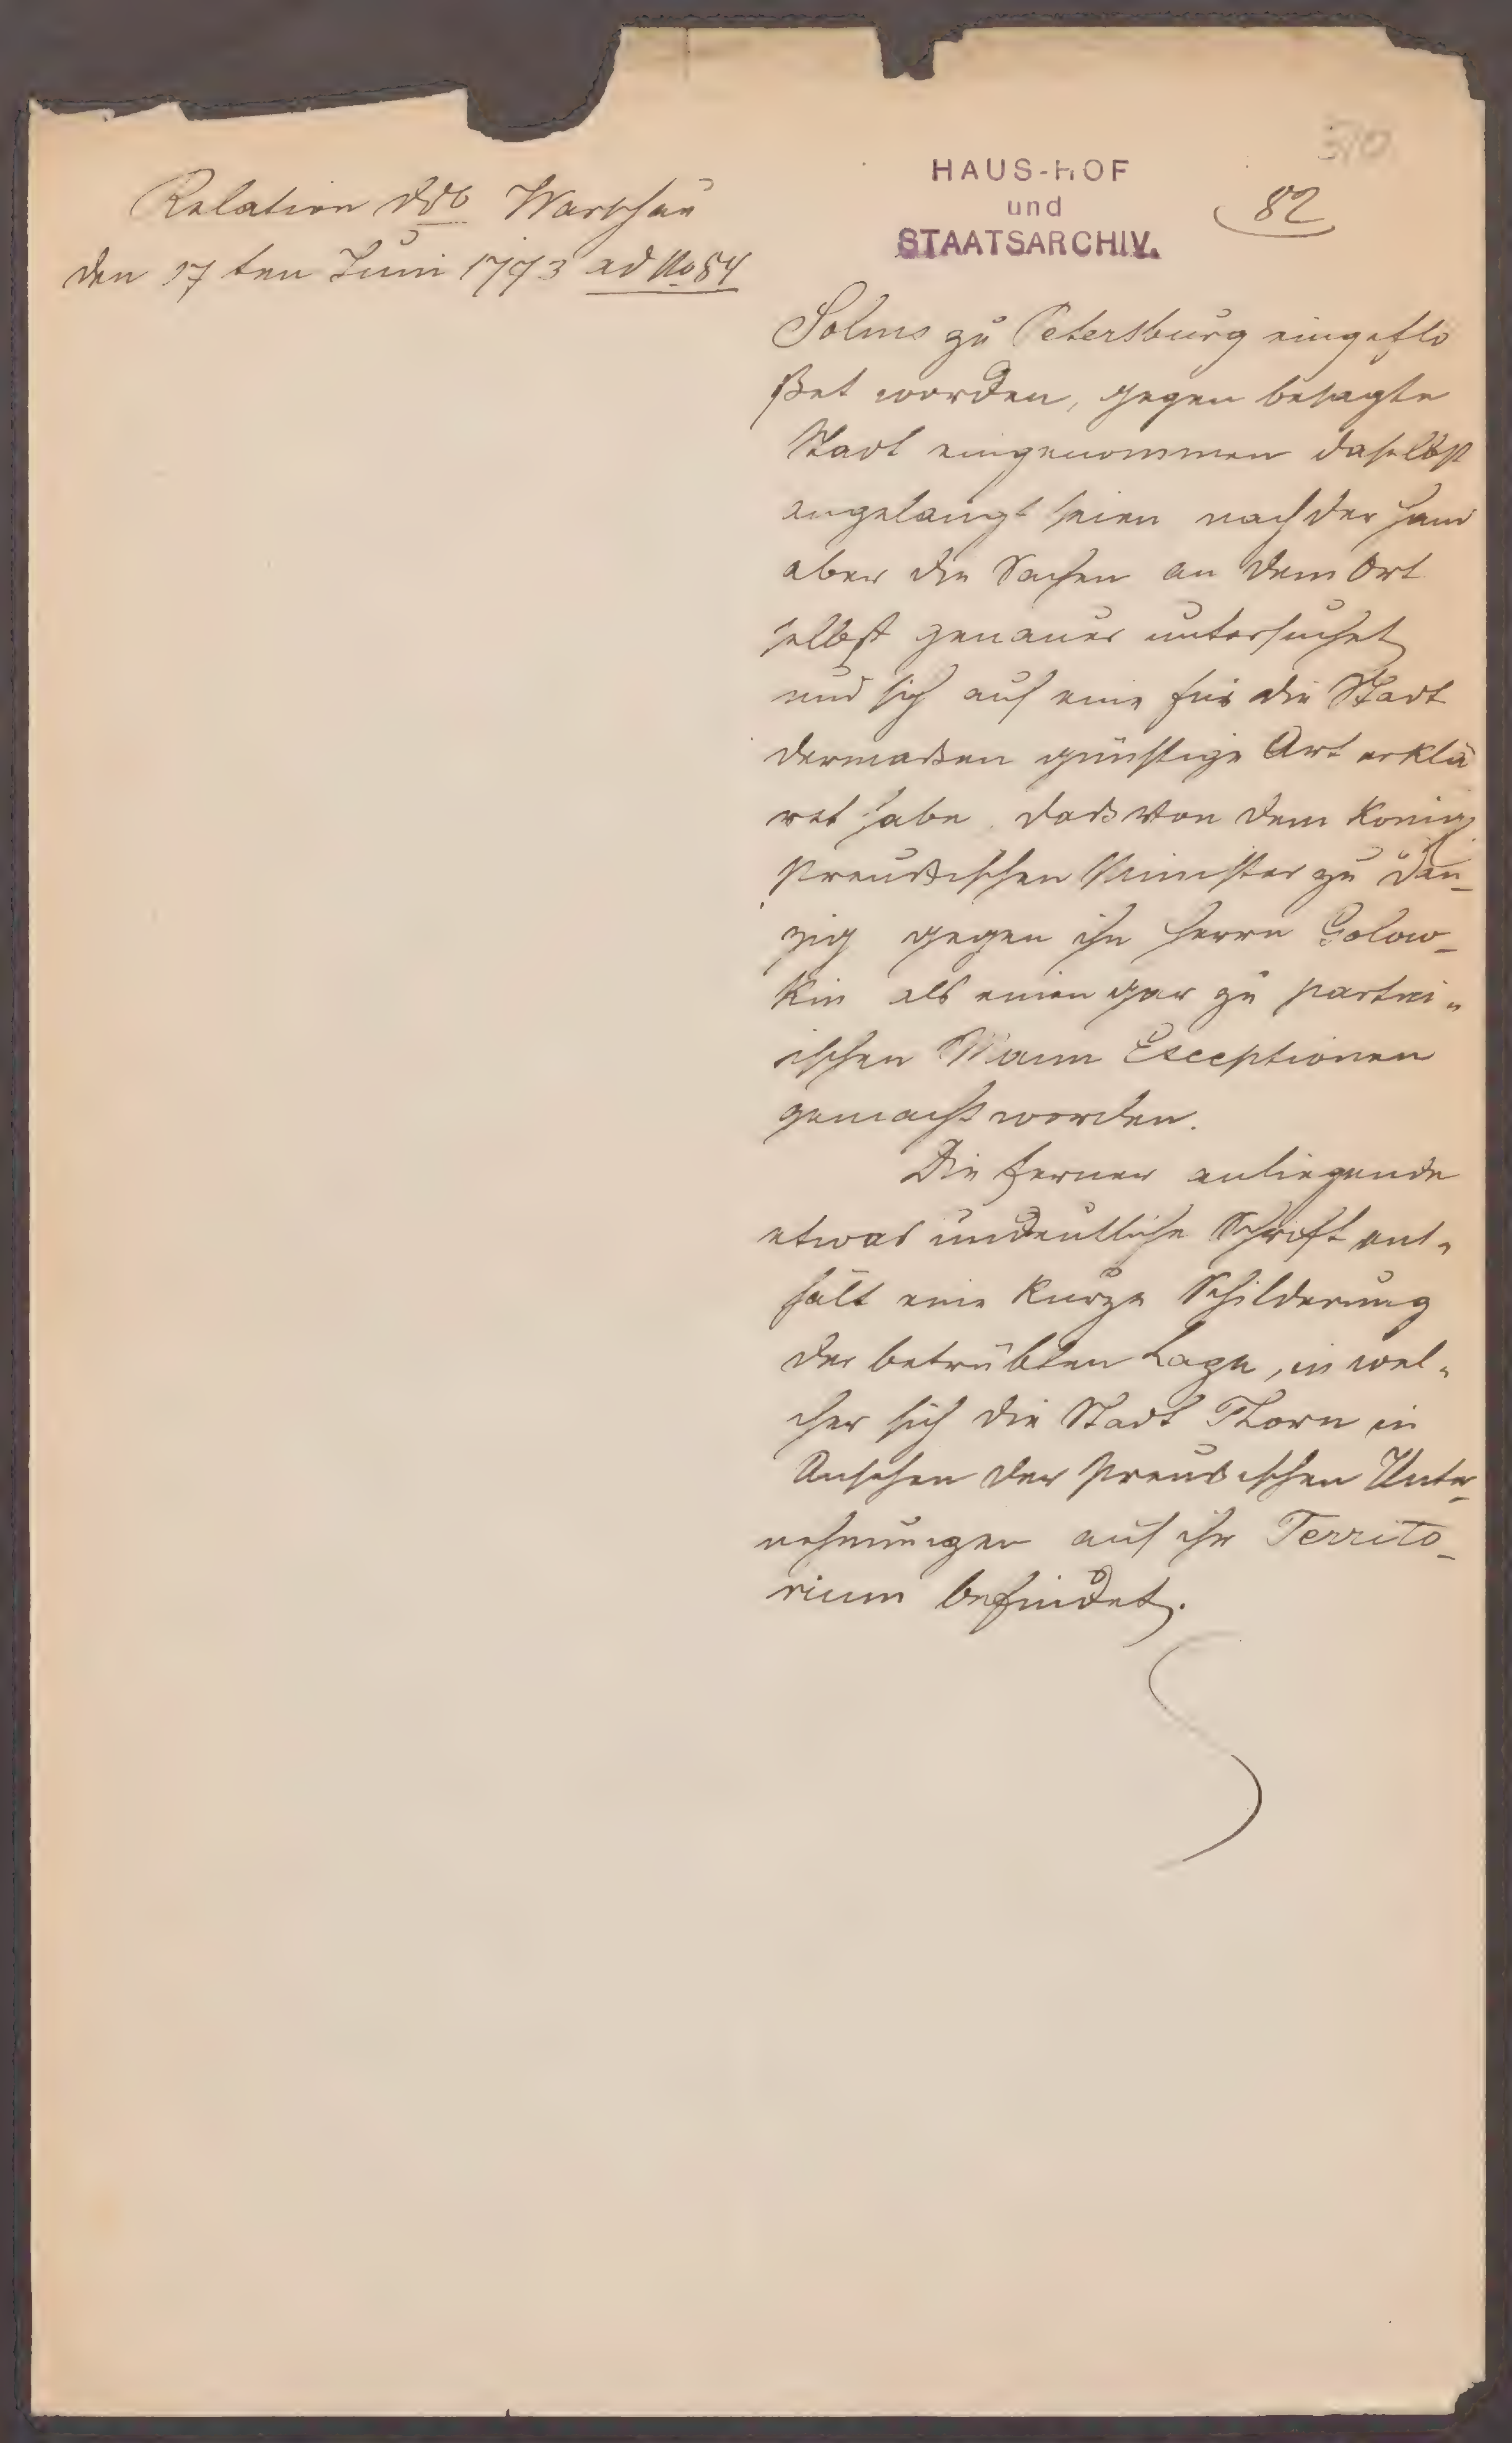 310
HAUS-HOF
und
STAATSARCHIV.
82
Relation ddo Warschau
den 17ten Juni 1773 ad No 84
Solms zu Petersburg eingeflö
ßet worden, gegen besagte
Stadt eingenommen daselbst
angelangt seien nach der Hand
aber die Sachen an dem Ort
selbst genauer untersuchet
und sich auf eine für die Stadt
dermaßen günstige Art erklä
ret habe daß von dem König
Preußischen Minister zu Dan-
zig gegen ihn Herrn Golow-
kin als einen gar zu partei-
ischen Mann Exceptionen
gemacht worden.
Die ferner anliegende
etwas undeutliche Schrift ent-
hält eine kurze Schilderung
der betrübten Lage, in wel-
cher sich die Stadt Thorn in
Ansehen der Preußischen Unter-
nehmungen auf ihr Territo-
rium befindet.